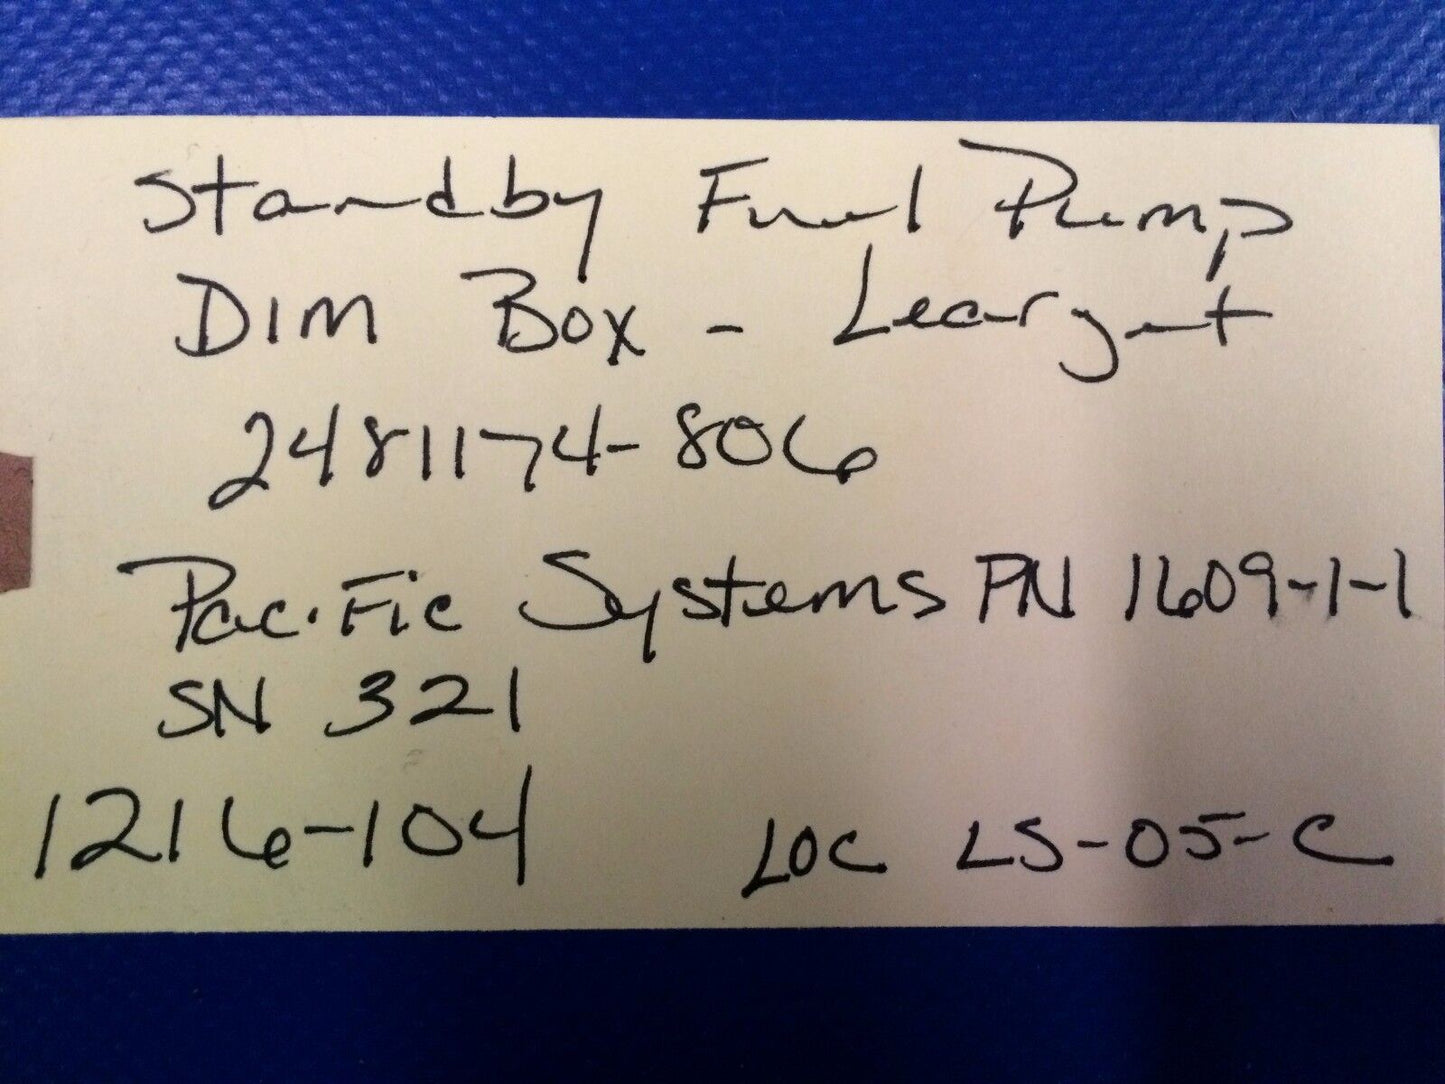 Standby Fuel Pump
DIM Box - Learjet
2481174-806
Pacific Systems PN 1609-1-1
SN 321
1216-104 LOC LS-05-C